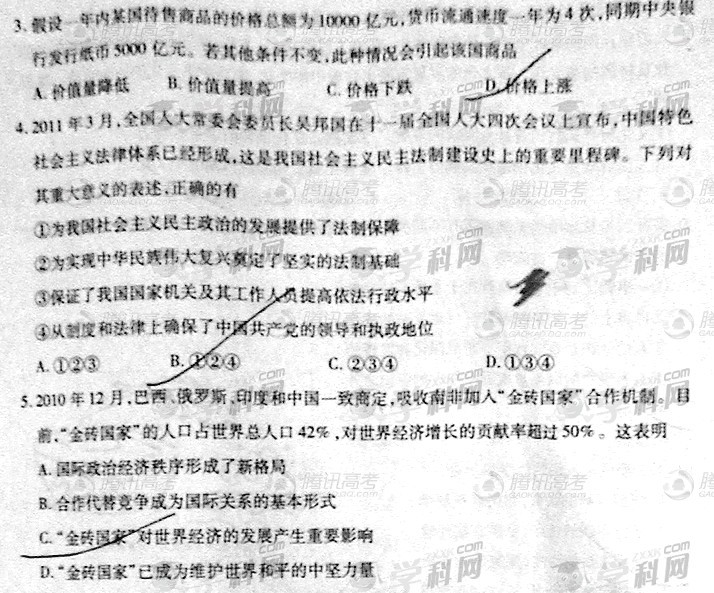 3. 假设一年内某国待售商品的价格总额为10000亿元,货币流通速度一年为4次,同期中央银
行发行纸币5000亿元。若其他条件不变,此种情况会引起该国商品
A. 价值量降低 B. 价值量提高 C. 价格下跌 D. 价格上涨
4. 2011年3月,全国人大常委会委员长吴邦国在十一届全国人大四次会议上宣布,中国特色
社会主义法律体系已经形成,这是我国社会主义民主法制建设史上的重要里程碑。下列对
其重大意义的表述,正确的有
①为我国社会主义民主政治的发展提供了法制保障
②为实现中华民族伟大复兴奠定了坚实的法制基础
③保证了我国国家机关及其工作人员提高依法行政水平
④从制度和法律上确保了中国共产党的领导和执政地位
A.①②③ B.①②④ C.②③④ D.①③④
5. 2010年12月,巴西、俄罗斯、印度和中国一致商定,吸收南非加入“金砖国家”合作机制。目
前,“金砖国家”的人口占世界总人口42%,对世界经济增长的贡献率超过50%。这表明
A. 国际政治经济秩序形成了新格局
B. 合作代替竞争成为国际关系的基本形式
C. “金砖国家”对世界经济的发展产生重要影响
D. “金砖国家”已成为维护世界和平的中坚力量